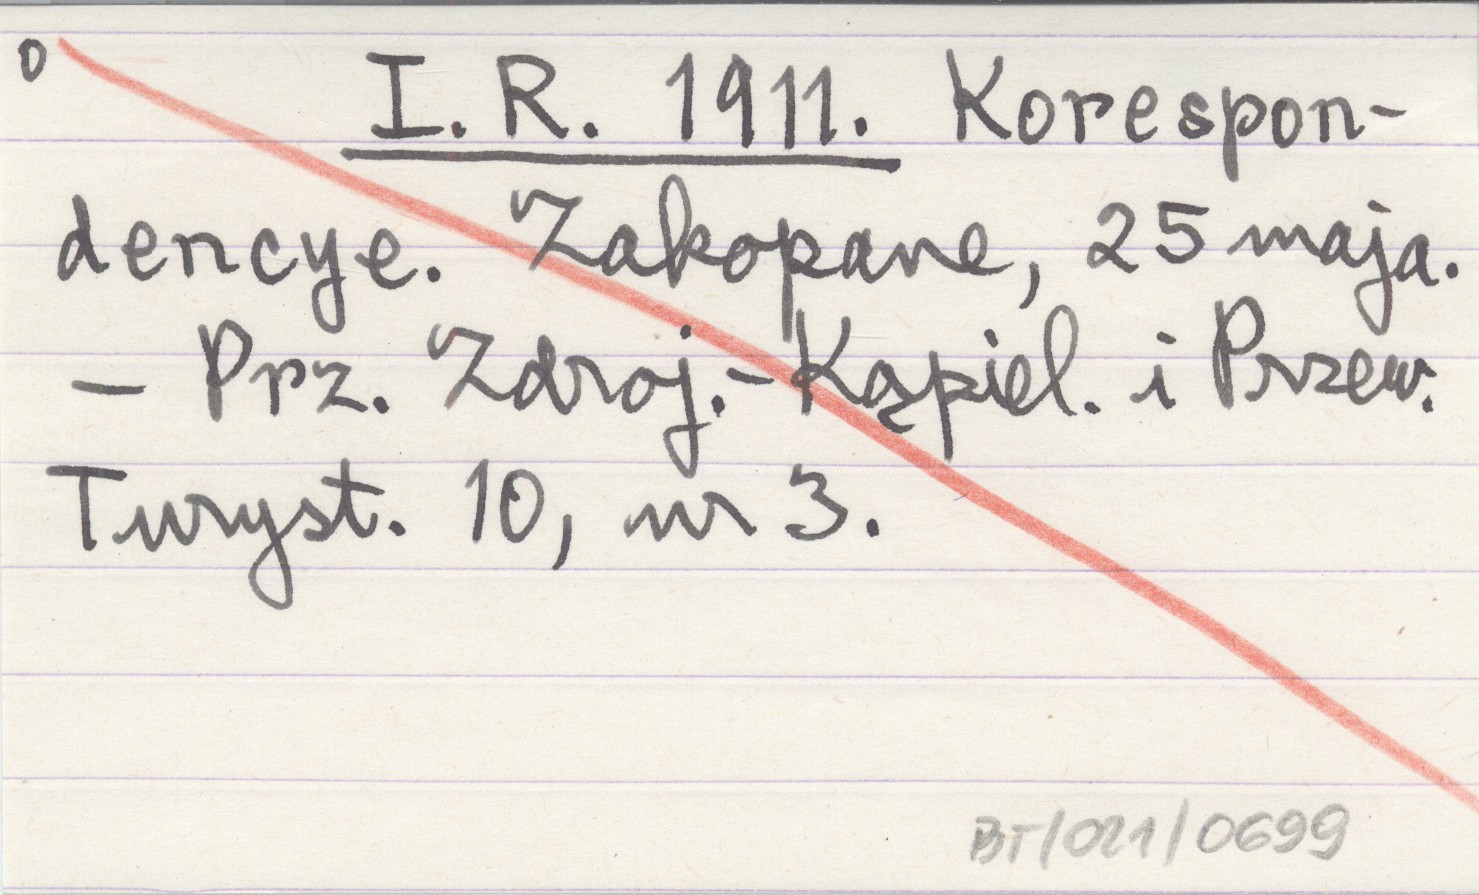 0
I. R. 1911. Korespon-
dencye. Zakopane, 25 maja.
– Prz. Zdroj.-Kąpiel. i Przew.
Turyst. 10, nr 3.
BT/021/0699